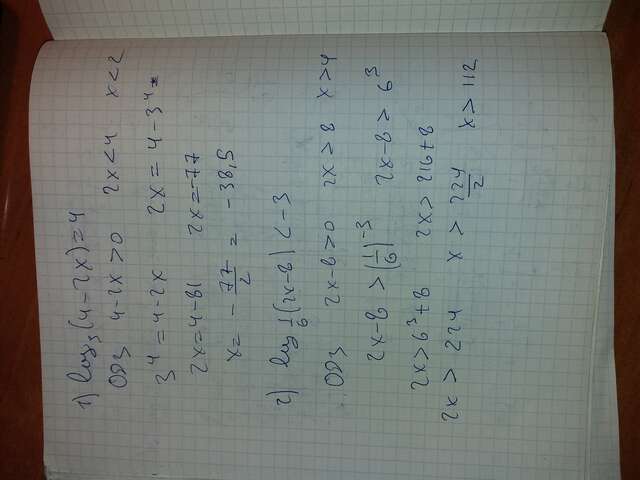 1) log₃(4-2x)=4
ОДЗ 4-2x>0 2x<4 x<2
3⁴=4-2x 2x=4-3⁴
2x=4-81 2x=-77
x= -77/2 = -38,5
2) log 1/6 (2x-8) < -3
ОДЗ 2x-8>0 2x>8 x>4
2x-8 >(1/6)⁻³ 2x-8> 6³
2x>6³+8 2x> 216+8
2x > 224 x > 224/2 x> 112